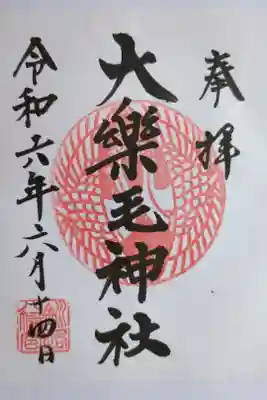 奉拝
大樂毛神社
令和六年六月十四日